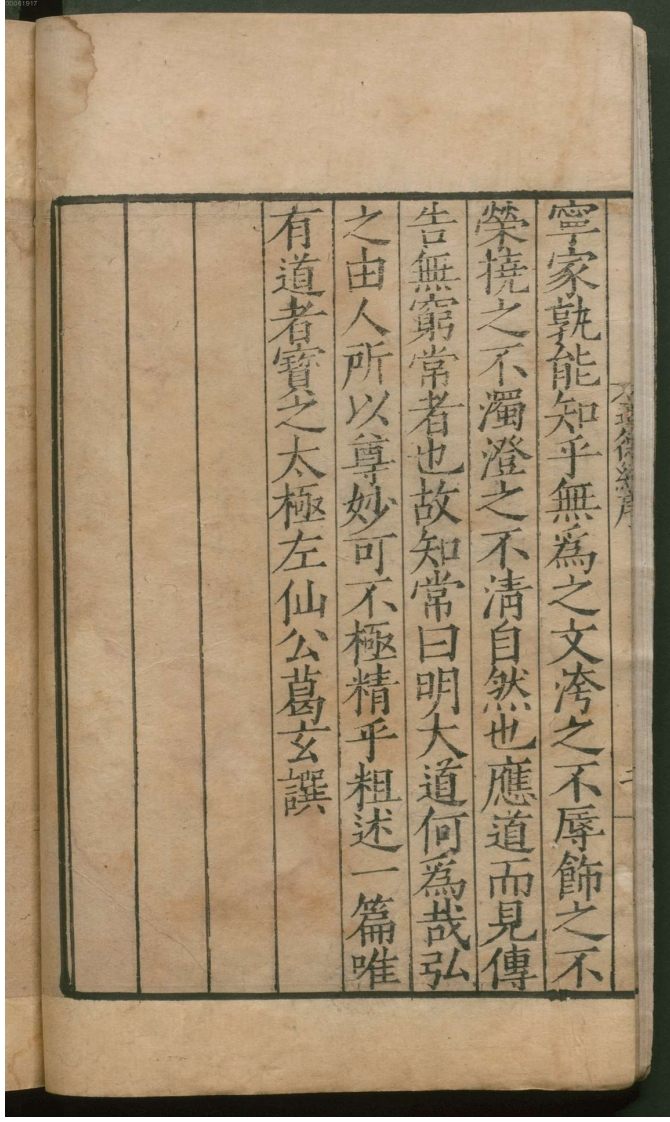 寧家孰能知乎無爲之文洿之不辱飾之不
榮撓之不濁澄之不清自然也應道而見傳
告無窮常者也故知常曰明大道何爲哉弘
之由人所以尊妙可不極精乎粗述一篇唯
有道者寶之太極左仙公葛玄譔
00061917